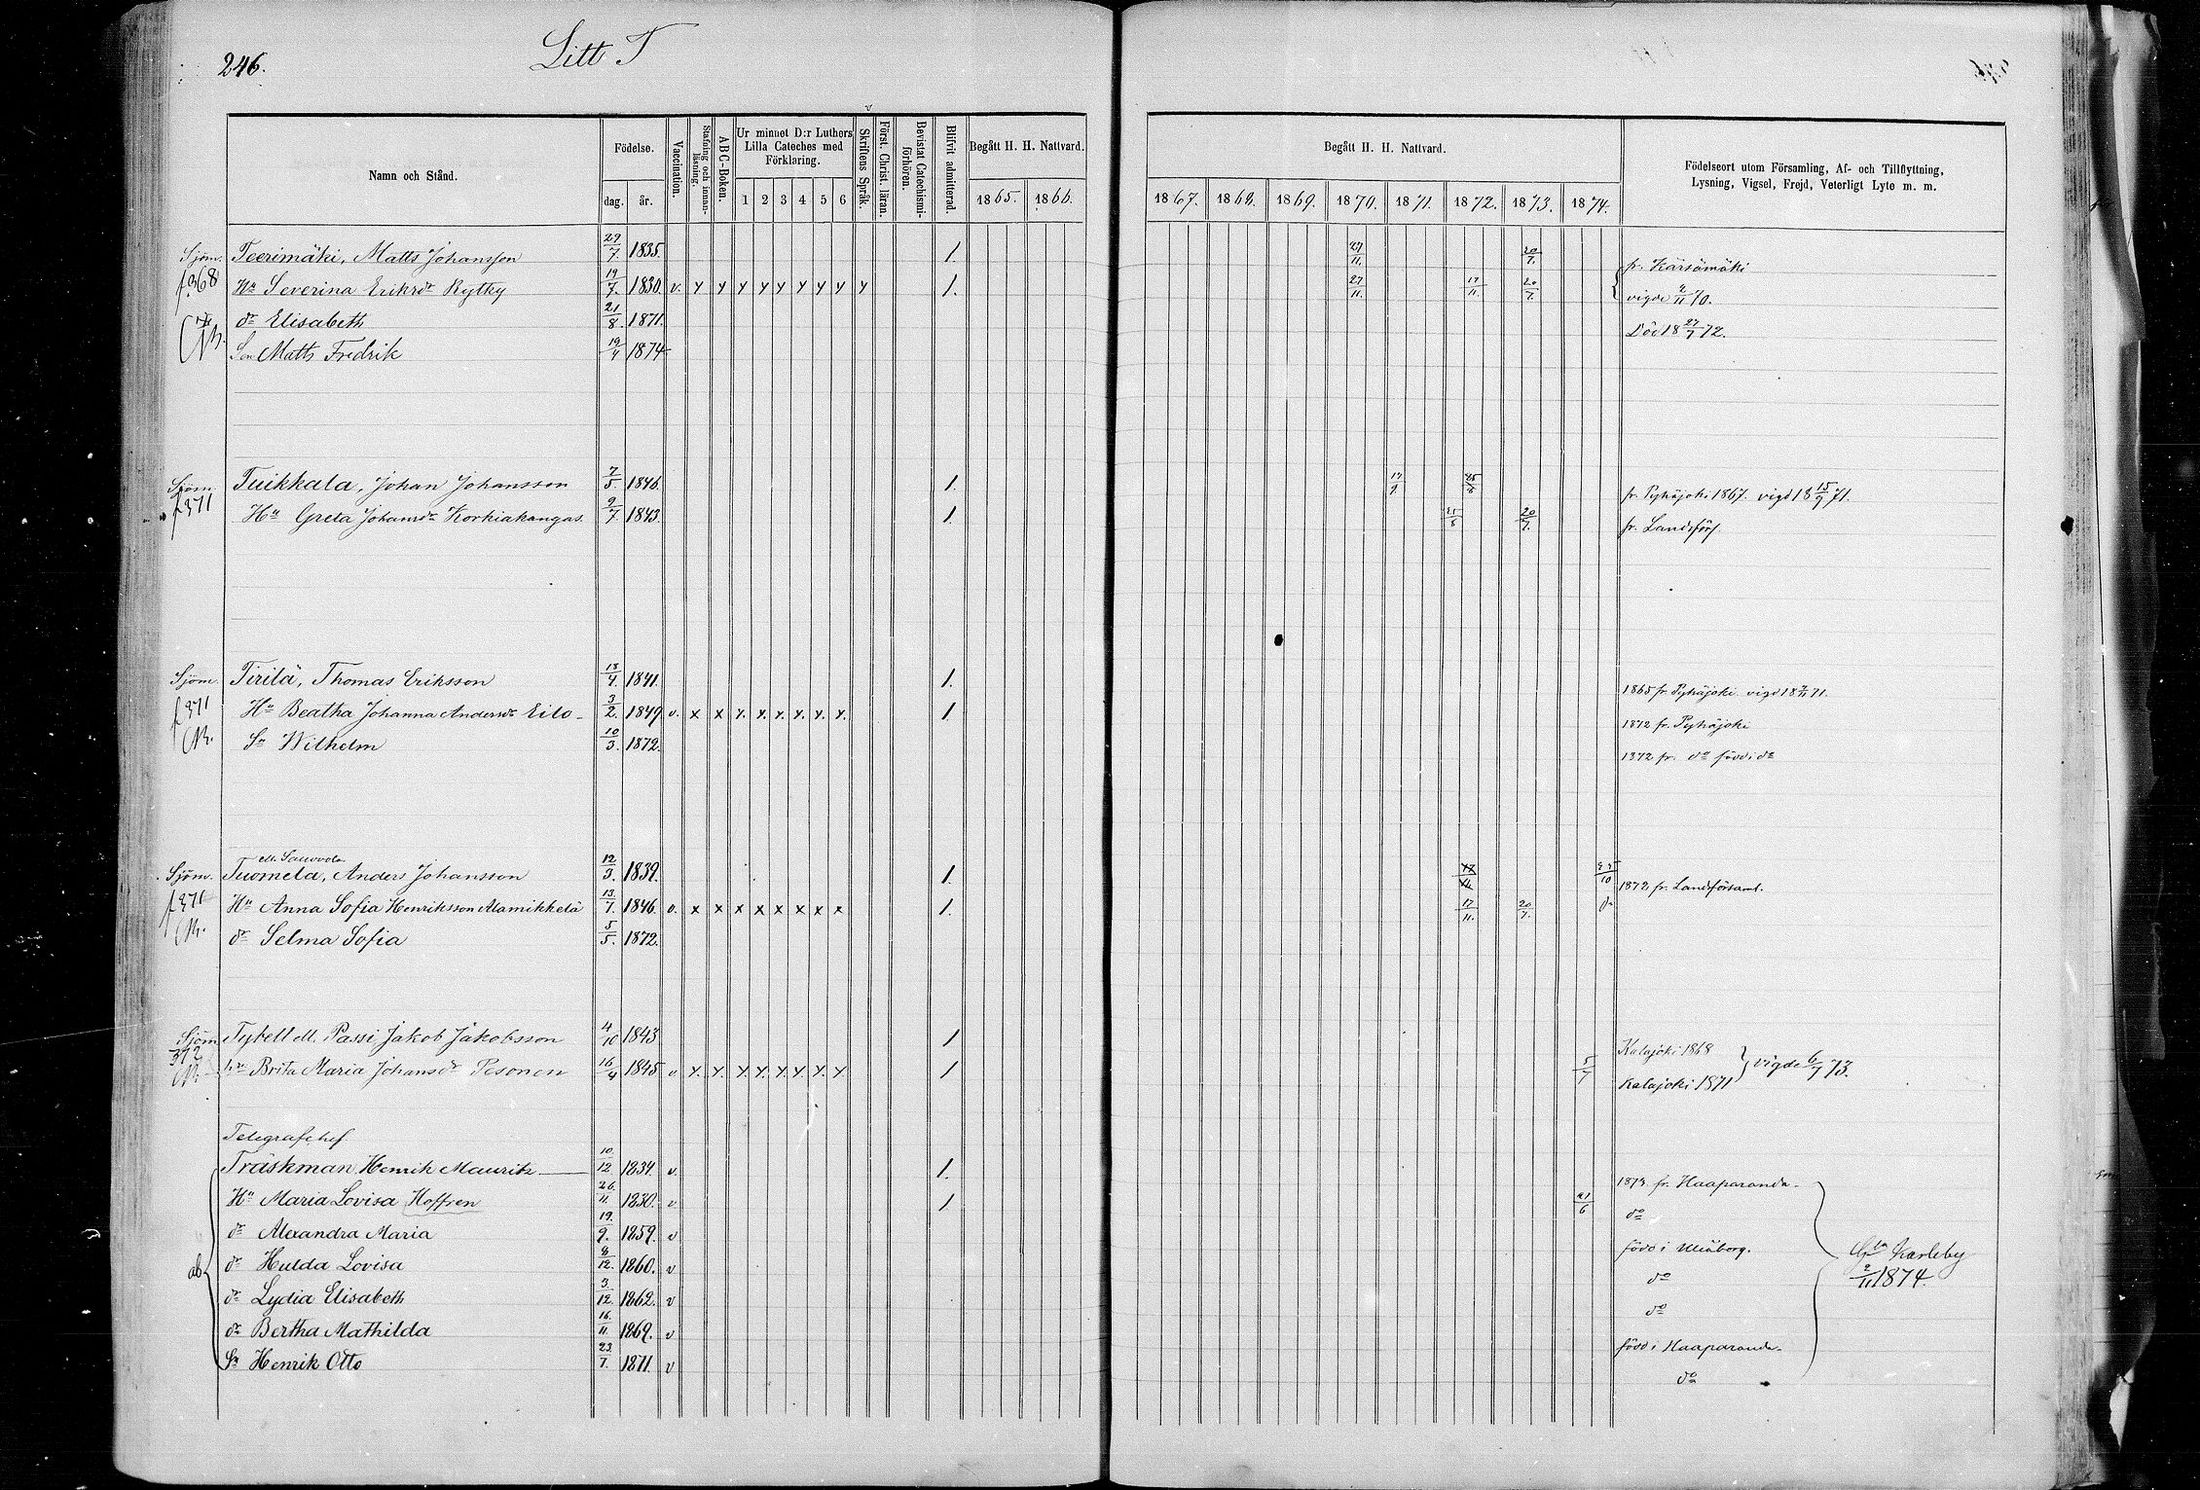 246.
Litt T
Namn och Stånd.
Födelse.
dag. år.
Vaccination.
Stafning och innanläsning.
ABC-Boken.
Ur minnet D:r Luthers Lilla Cateches med Förklaring.
1 2 3 4 5 6
Skriftens Språk.
Först. Christ. läran.
Bevistat Catechismiförhören.
Blifvit admitterad.
Begått H. H. Nattvard.
1865. 1866.
Begått H. H. Nattvard.
1867. 1868. 1869. 1870. 1871. 1872. 1873. 1874.
Födelseort utom Församling, Af- och Tillflyttning,
Lysning, Vigsel, Frejd, Veterligt Lyte m. m.
Sjöm. Teerimäki, Matts Johansson 29/7. 1835. 1. 27/11. 20/7. fr. Kärsämäki
f 368 Hu Severina Eriksdr Rytky 19/7. 1830. v. y y y y y y y y y 1. 27/11. 17/11. 20/7. vigde 2/11 70.
dr Elisabeth 21/8. 1871. Död 18 27/7 72.
Son Matts Fredrik 19/4 1874
Sjöm. Tuikkala, Johan Johansson 7/5. 1846. 1. 17/9. 25/8 fr. Pyhäjoki 1867. vigd 18 15/9 71.
f 371 Hu Greta Johansdr Korkiakangas. 9/7. 1843. 1. 25/8 20/7. fr. Landsförs.
Sjöm. Tirilä, Thomas Eriksson 13/4. 1841. 1. 1865 fr Pyhäjoki. vigd 18 71.
f 371 Hu Beatha Johanna Andersdr Eilo 3/2. 1849 v. x x y. y. y. y. y. y. 1. 1872 fr. Pyhäjoki
Sn Wilhelm 10/3. 1872. 1872 fr. do född i do
ell.
Sjöm. Tuomela, Anders Johansson 12/3. 1839. 1. 1872 fr. Landsförsaml.
f 371 Hu Anna Sofia Henriksson Alamikkelä 13/7. 1846. v. x x x x x x x x 1. 17/11. 20/7. do
dr Selma Sofia 5/5. 1872.
Sjöm Tybell ell. Passi Jakob Jakobsson 4/10 1843 1 Kalajoki 1868
372 hu Brita Maria Johansdr Pesonen 16/4 1845 v y. y. y. y. y. y. y. y. 1 5/7 Kalajoki 1871 } vigde 6/7 73.
Telegrafchef
Träskman Henrik Mauritz 10/12 1834. v. 1. 1873 fr. Haaparanda
Hu Maria Lovisa Hoffren 26/11. 1830. v 1 21/6 do
dr Alexandra Maria 19/9. 1859. v född i Uleåborg.
ab dr Hulda Lovisa 8/12. 1860. v do Karleby
dr Lydia Elisabeth 3/12. 1862. v do 2/11 1874.
dr Bertha Mathilda 16/11 1869. v född i Haaparanda
Sn Henrik Otto 23/7. 1871. v do